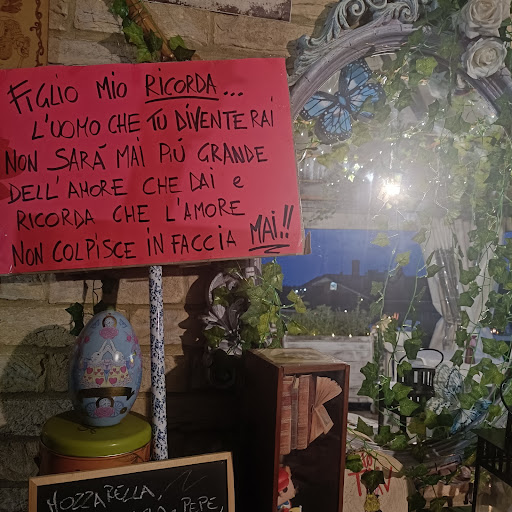 FIGLIO MIO RICORDA...
L'UOMO CHE TU DIVENTERAI
NON SARÁ MAI PIÚ GRANDE
DELL'AMORE CHE DAI e
RICORDA CHE L'AMORE
NON COLPISCE IN FACCIA MAI!!
MOZZARELLA,
PEPE,